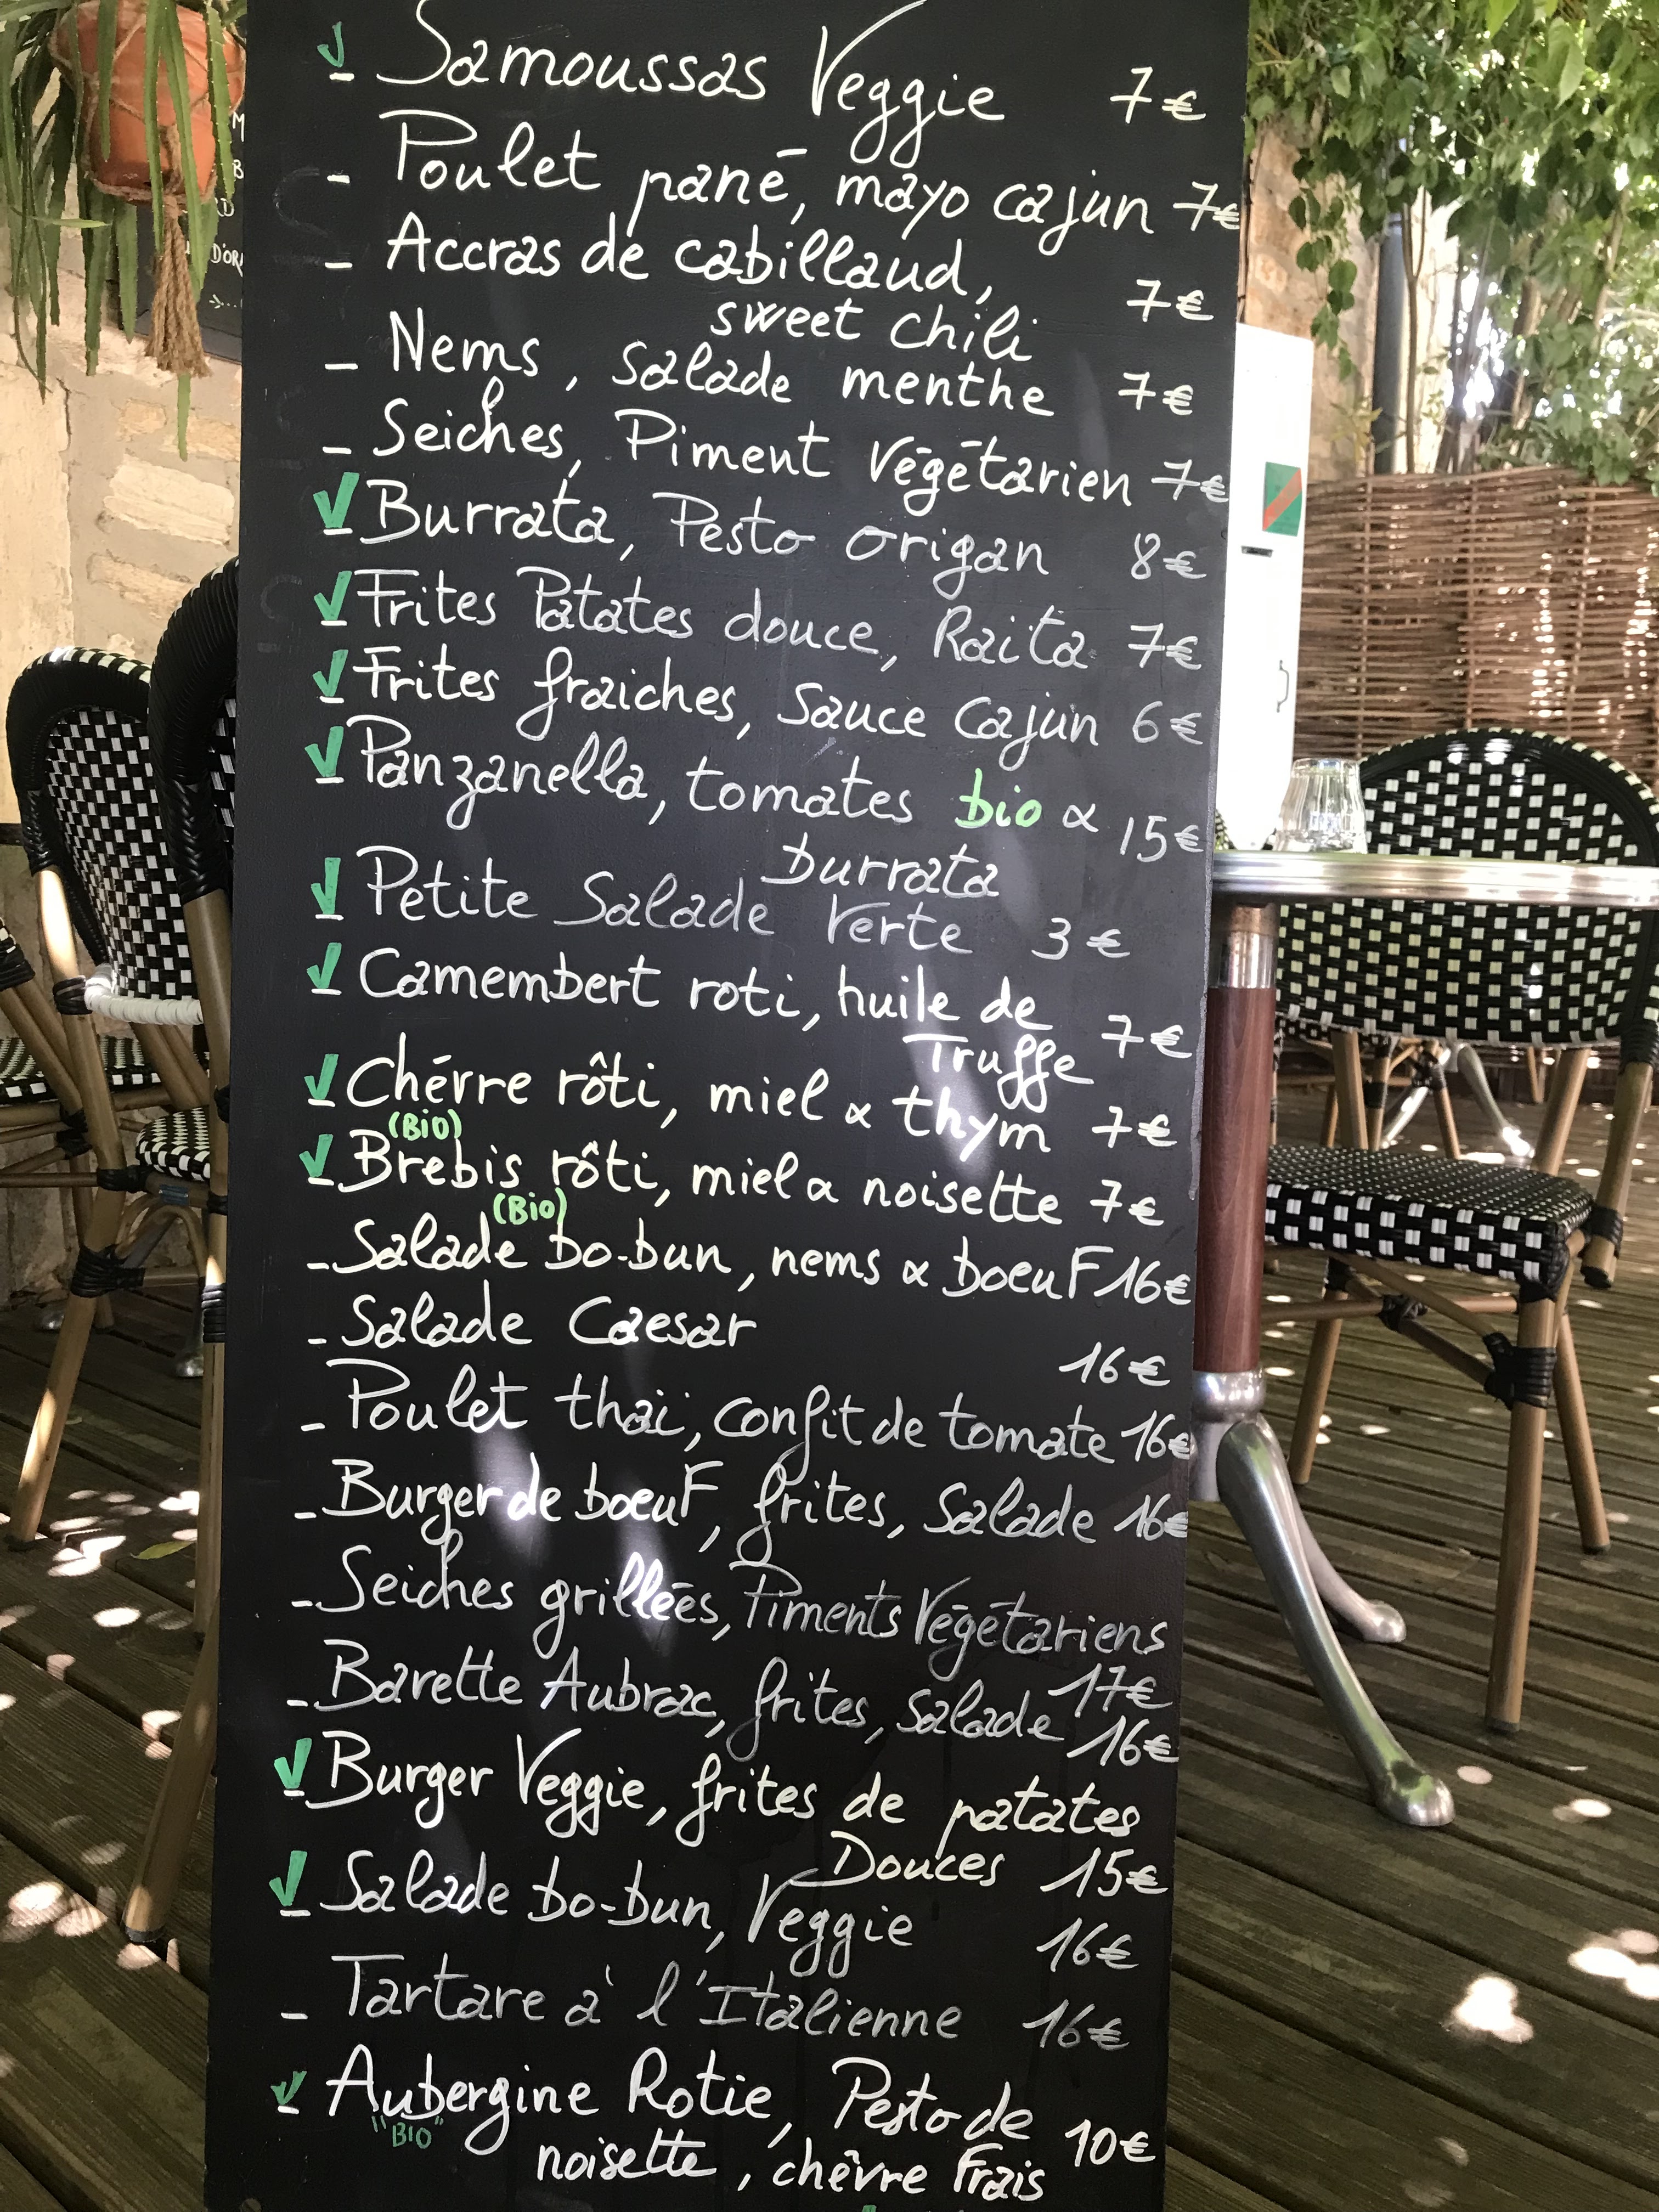 Samoussas Veggie 7€
- Poulet pané, mayo cajun 7€
- Accras de cabillaud,
sweet chili 7€
- Nems, salade menthe 7€
- Seiches, Piment végétarien 7€
Burrata, Pesto origan 8€
Frites Patates douce, Raita 7€
Frites fraiches, Sauce Cajun 6€
Panzanella, tomates bio & 15€
burrata
Petite Salade Verte 3€
Camembert roti, huile de
Truffe 7€
Chévre rôti, miel & thym 7€
(Bio)
Brebis rôti, miel & noisette 7€
(Bio)
- Salade bo-bun, nems & boeuf 16€
- Salade Caesar 16€
- Poulet thai, confit de tomate 16€
- Burger de boeuf, frites, Salade 16€
- Seiches grillées, Piments Végétariens
17€
- Barette Aubrac, frites, salade 16€
Burger Veggie, frites de patates
Douces 15€
Salade bo-bun, Veggie 16€
- Tartare à l'Italienne 16€
Aubergine Rotie, Pesto de
"BIO"
noisette, chêvre Frais 10€